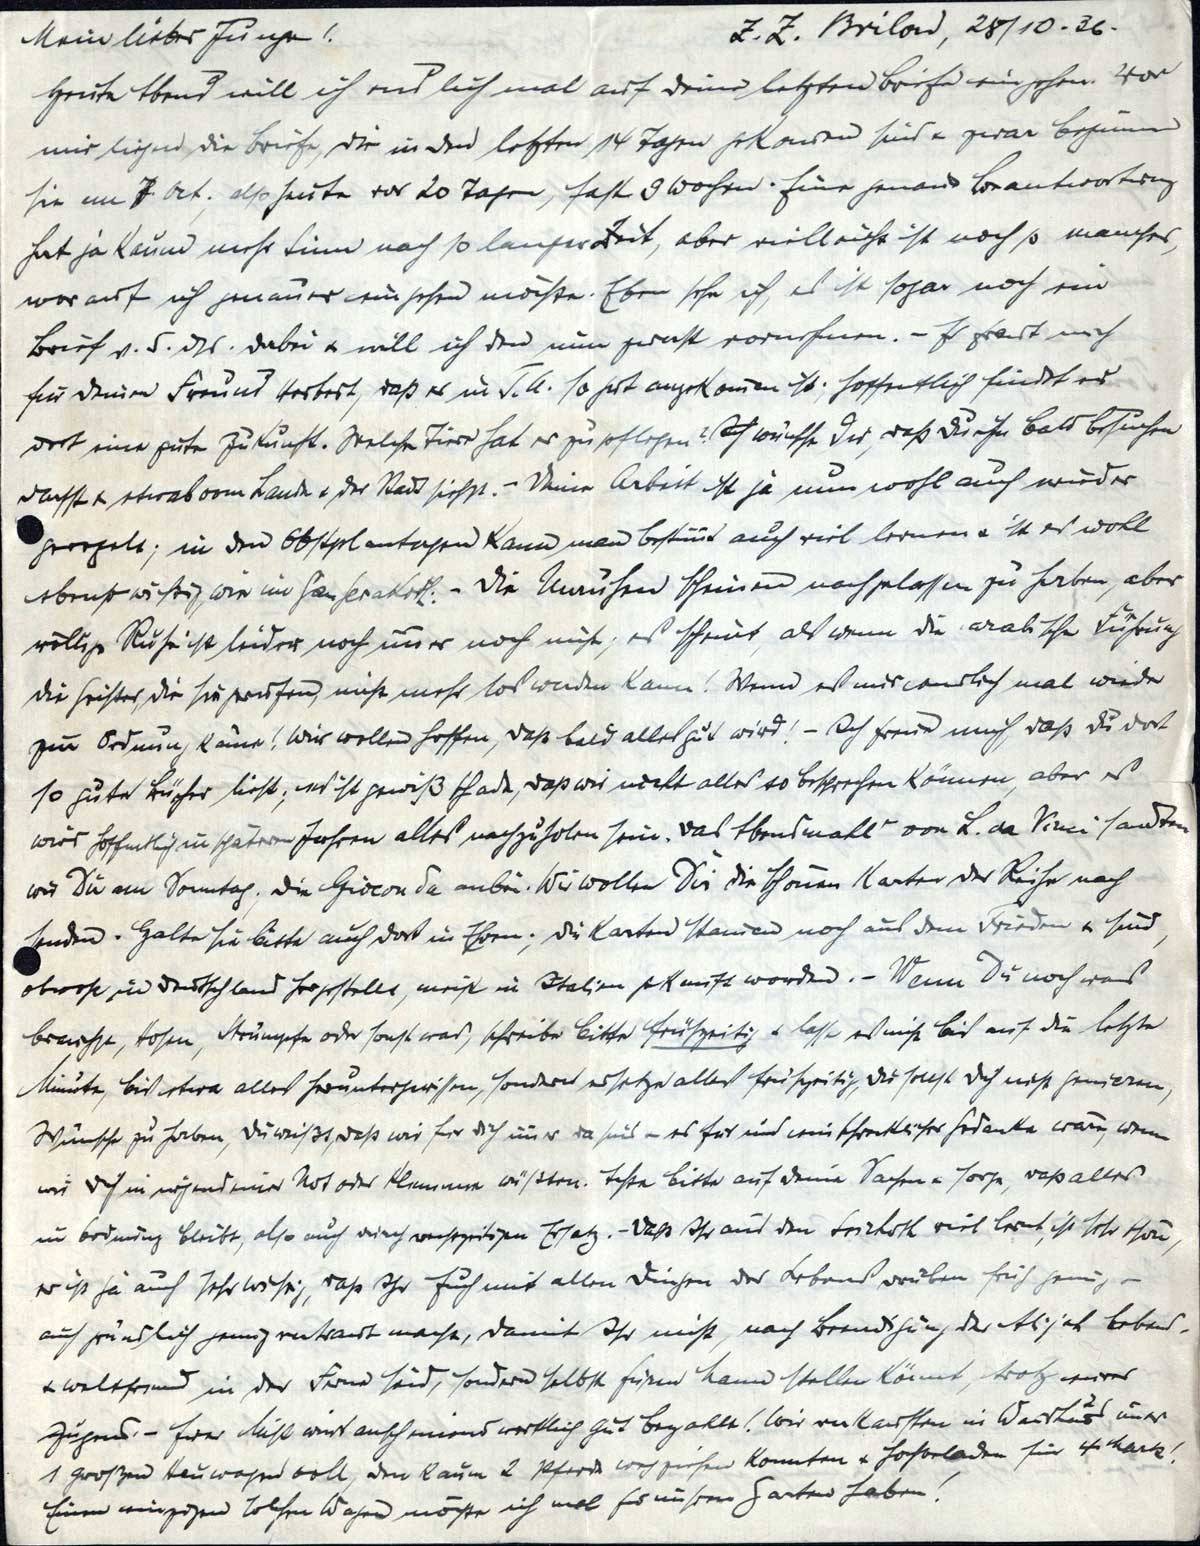 Mein lieber Junge! Z. Z. Brilon, 28/10.36.
Heute Abend will ich endlich mal auf Deine letzten Briefe eingehen. Vor
mir liegen die Briefe, die in den letzten 14 Tagen gekommen sind & zwar beginnen
sie am 7 Oct., also heute vor 20 Tagen, fast 3 Wochen. Eine genaue Beantwortung
hat ja kaum mehr Sinn nach so langer Zeit, aber vielleicht ist noch so manches,
worauf ich genauer eingehen möchte. Eben sehe ich, es ist sogar noch ein
Brief v. 5. ds. dabei & will ich den nun zuerst vornehmen. - Es freut mich
für Deinen Freund Herbert, daß er in T.A. so gut angekommen ist; hoffentlich findet er
dort eine gute Zukunft. Welche Tiere hat er zu pflegen? Ich wünsche Dir, daß Du ihn bald besuchen
darfst & etwas vom Lande & der Stadt siehst. - Deine Arbeit ist ja nun wohl auch wieder
geregelt; in den Obstplantagen kann man bestimmt auch viel lernen & ist es wohl
ebenso wichtig, wie im - Die Unruhen scheinen nachgelassen zu haben, aber
völlige Ruhe ist leider noch immer noch nicht; es scheint, als wenn die arabische Führung
die Geister, die sie gerufen, nicht mehr los werden kann! Wenn es nur endlich mal wieder
zur Ordnung käme! Wir wollen hoffen, daß bald alles gut wird! - Ich freue mich, daß Du dort
so gute Bücher liest; es ist gewiß schade, daß wir nicht alles so besprechen können, aber es
wird hoffentlich in späteren Jahren alles nachzuholen sein. Das Abendmahl von L. da Vinci sandten
wir Dir am Sonntag. Die Gioconda anbei. Wir wollen Dir die schönen Karten der Reihe nach
senden. Halte sie bitte auch dort in Ehren; die Karten stammen noch aus dem Frieden & sind,
obwohl in Deutschland hergestellt, meist in Italien gekauft worden. - Wenn Du noch was
brauchst, Hosen, Strümpfe oder sonst was, schreibe bitte frühzeitig & lasse es nicht bis auf die letzte
Minute, bis etwa alles heruntergerissen, sondern ersetze alles frühzeitig, Du sollst Dich nicht genieren,
Wünsche zu haben, Du weißt, daß wir für Dich immer da sind - es für uns ein schrecklicher Gedanke wäre, wenn
wir Dich in irgendeiner Not oder Klemme wüßten. Achte bitte auf Deine Sachen & sorge, daß alles
in Ordnung bleibt, also auch durch rechtzeitigen Ersatz. - Daß Ihr aus den viel lernt, ist sehr schön,
es ist ja auch sehr wichtig, daß Ihr Euch mit allen Dingen des Lebens drüben früh genug -
auch gründlich genug vertraut macht, damit Ihr nicht, nach Beendigung der Alijah lebens-
& weltfremd in der Ferne seid, sondern selbst Euren Mann stellen könnt, trotz eurer
Jugend. - Euer Mist wird anscheinend wirklich gut bezahlt! Wir verkauften in immer
1 großen Heuwagen voll, den kaum 2 Pferde wegziehen konnten & hochverladen für 4 Mark!
Einen einzigen solchen Wagen möchte ich mal für unseren Garten haben!